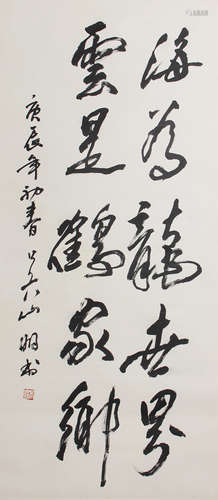 海為龍世界
雲是鶴家鄉
庚辰年初春
山
書